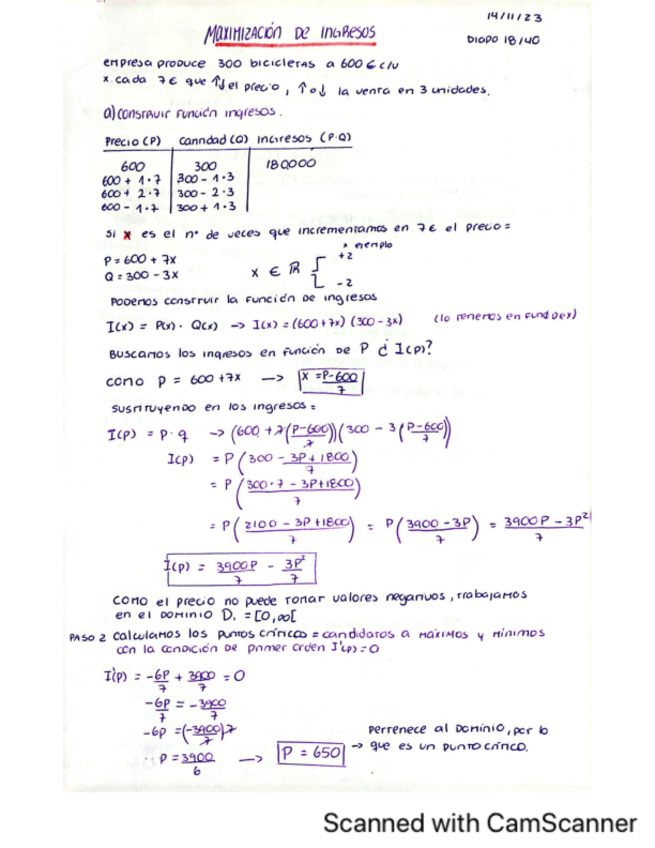 14/11/23
MAXIMIZACIÓN DE INGRESOS
DIAPO 18/40
empresa produce 300 bicicletas a 600€ c/u
x cada 7€ que ↑↓ el precio, ↑ o ↓ la venta en 3 unidades.
a) construir función ingresos.
Precio (P) Cantidad (Q) Ingresos (P·Q)
600 300 180000
600 + 1·7 300 - 1·3
600 + 2·7 300 - 2·3
600 - 1·7 300 + 1·3
Si x es el nº de veces que incrementamos en 7€ el precio =
x ejemplo
P = 600 + 7x
Q = 300 - 3x
x ∈ ℝ
+2
-2
Podemos construir la función de ingresos
I(x) = P(x) · Q(x) -> I(x) = (600 + 7x) (300 - 3x) (lo tenemos en fund de x)
Buscamos los ingresos en función de P ¿ I(p)?
como P = 600 + 7x -> x = P-600/7
sustituyendo en los ingresos =
I(p) = P · q -> (600 + 7(P-600/7))(300 - 3(P-600/7))
I(p) = P(300 - 3P + 1800/7)
= P(300·7 - 3P + 1800/7)
= P(2100 - 3P + 1800/7) = P(3900 - 3P/7) = 3900P - 3P²/7
I(p) = 3900P/7 - 3P²/7
como el precio no puede tomar valores negativos, trabajamos
en el dominio D. = [0,∞[
PASO 2 calculamos los puntos críticos = candidatos a máximos y mínimos
con la condición de primer orden I'(p) = 0
I'(p) = -6P/7 + 3900/7 = 0
-6P/7 = -3900/7
-6p = (-3900/7)7
p = 3900/6 -> P = 650
perrenece al dominio, por lo
-> que es un punto crítico.
Scanned with CamScanner